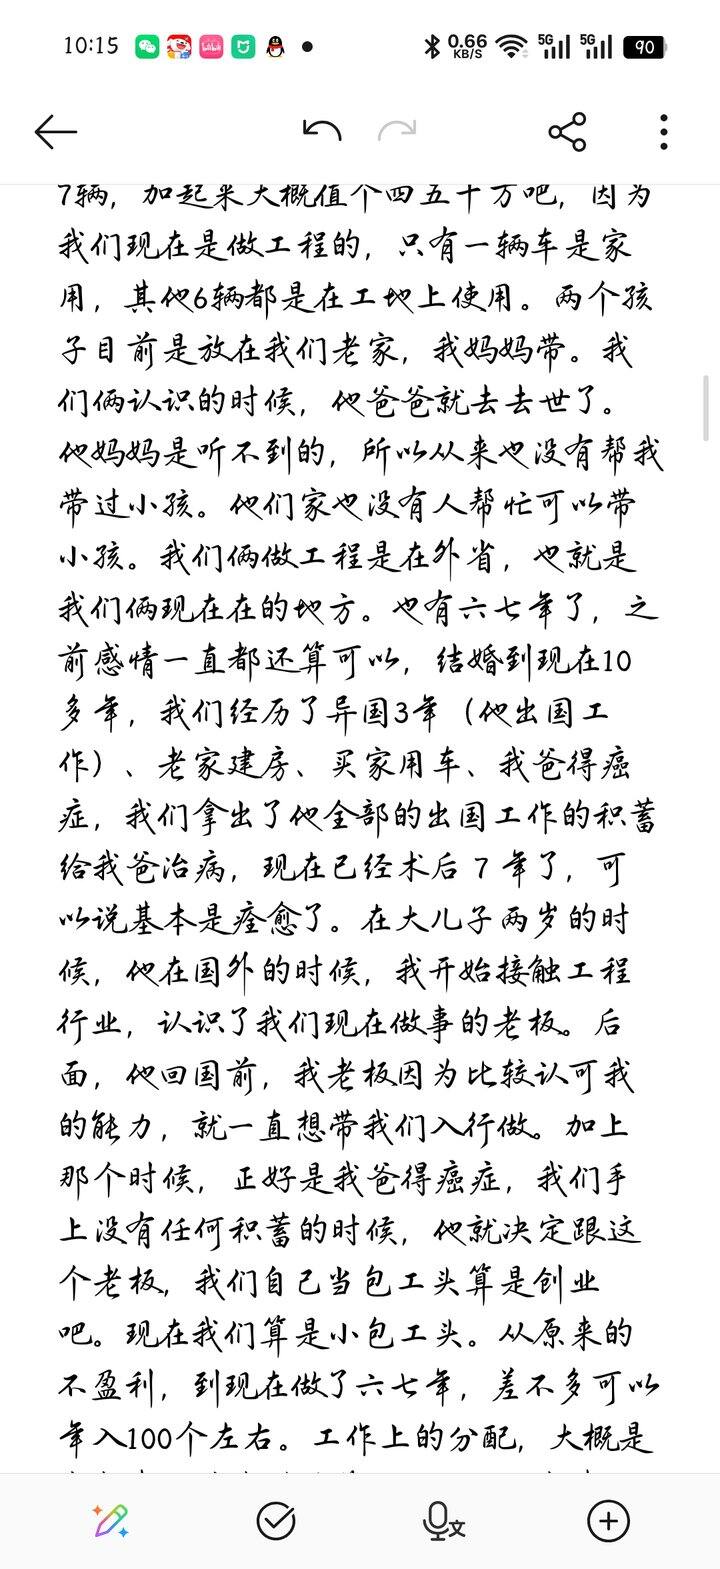 10:15
0.66
KB/S
5G
5G
90
7辆，加起来大概值个四五十万吧，因为
我们现在是做工程的，只有一辆车是家
用，其他6辆都是在工地上使用。两个孩
子目前是放在我们老家，我妈妈带。我
们俩认识的时候，他爸爸就去去世了。
他妈妈是听不到的，所以从来也没有帮我
带过小孩。他们家也没有人帮忙可以带
小孩。我们俩做工程是在外省，也就是
我们俩现在在的地方。也有六七年了，之
前感情一直都还算可以，结婚到现在10
多年，我们经历了异国3年（他出国工
作）、老家建房、买家用车、我爸得癌
症，我们拿出了他全部的出国工作的积蓄
给我爸治病，现在已经术后 7 年了，可
以说基本是痊愈了。在大儿子两岁的时
候，他在国外的时候，我开始接触工程
行业，认识了我们现在做事的老板。后
面，他回国前，我老板因为比较认可我
的能力，就一直想带我们入行做。加上
那个时候，正好是我爸得癌症，我们手
上没有任何积蓄的时候，他就决定跟这
个老板，我们自己当包工头算是创业
吧。现在我们算是小包工头。从原来的
不盈利，到现在做了六七年，差不多可以
年入100个左右。工作上的分配，大概是
文